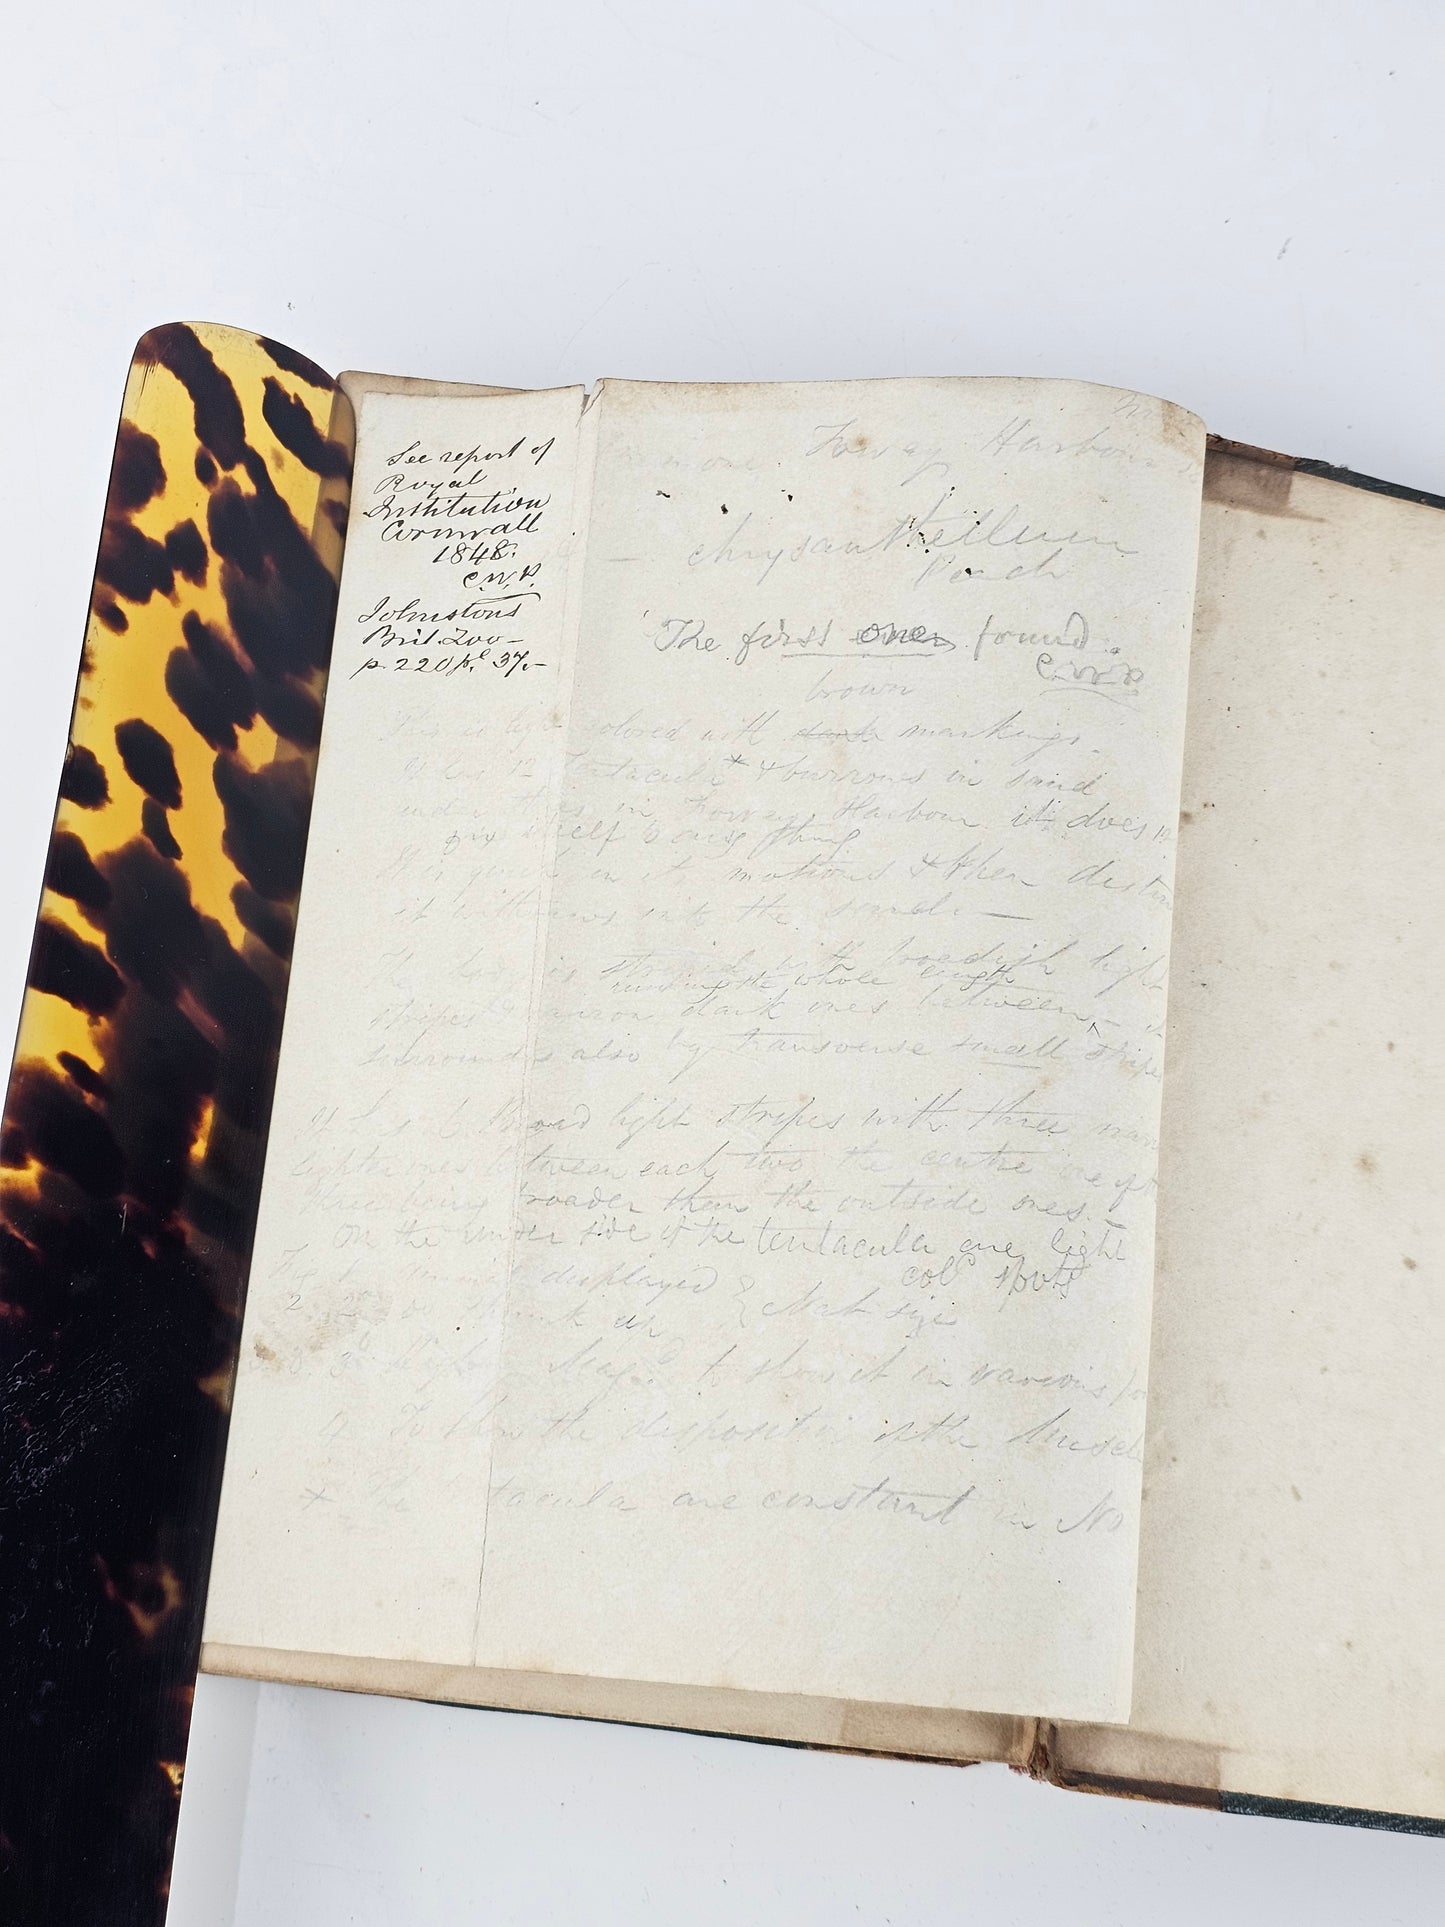 See report of
Royal
Institution
Cornwall
1848.
C.W.P.
Johnstons
Brit. Zoo-
p. 220 pl. 37.-
Fowey Harbour
- chrysanthellum
Peach
The first ones found.
CWP
brown
This is light colored with dark markings.
It has 12 Tentacula * & burrows in sand
under stones in Fowey Harbour it does
fix itself to any thing
It is quick in its motions & when
it withdraws into the sand. —
The body is striped with broadish light
running the whole length
stripes & narrow dark ones between,
surrounded also by transverse small stripe
It has 6 Broad light stripes with three
lighter ones between each two the centre one of
these being broader than the outside ones. -
On the under side of the tentacula are light
cold spots
Fig 1 displayed
2 do shrunk up } Nat size
3 Highly Magd to show it in various
4 To show the disposition of the
* The tentacula are constant in No